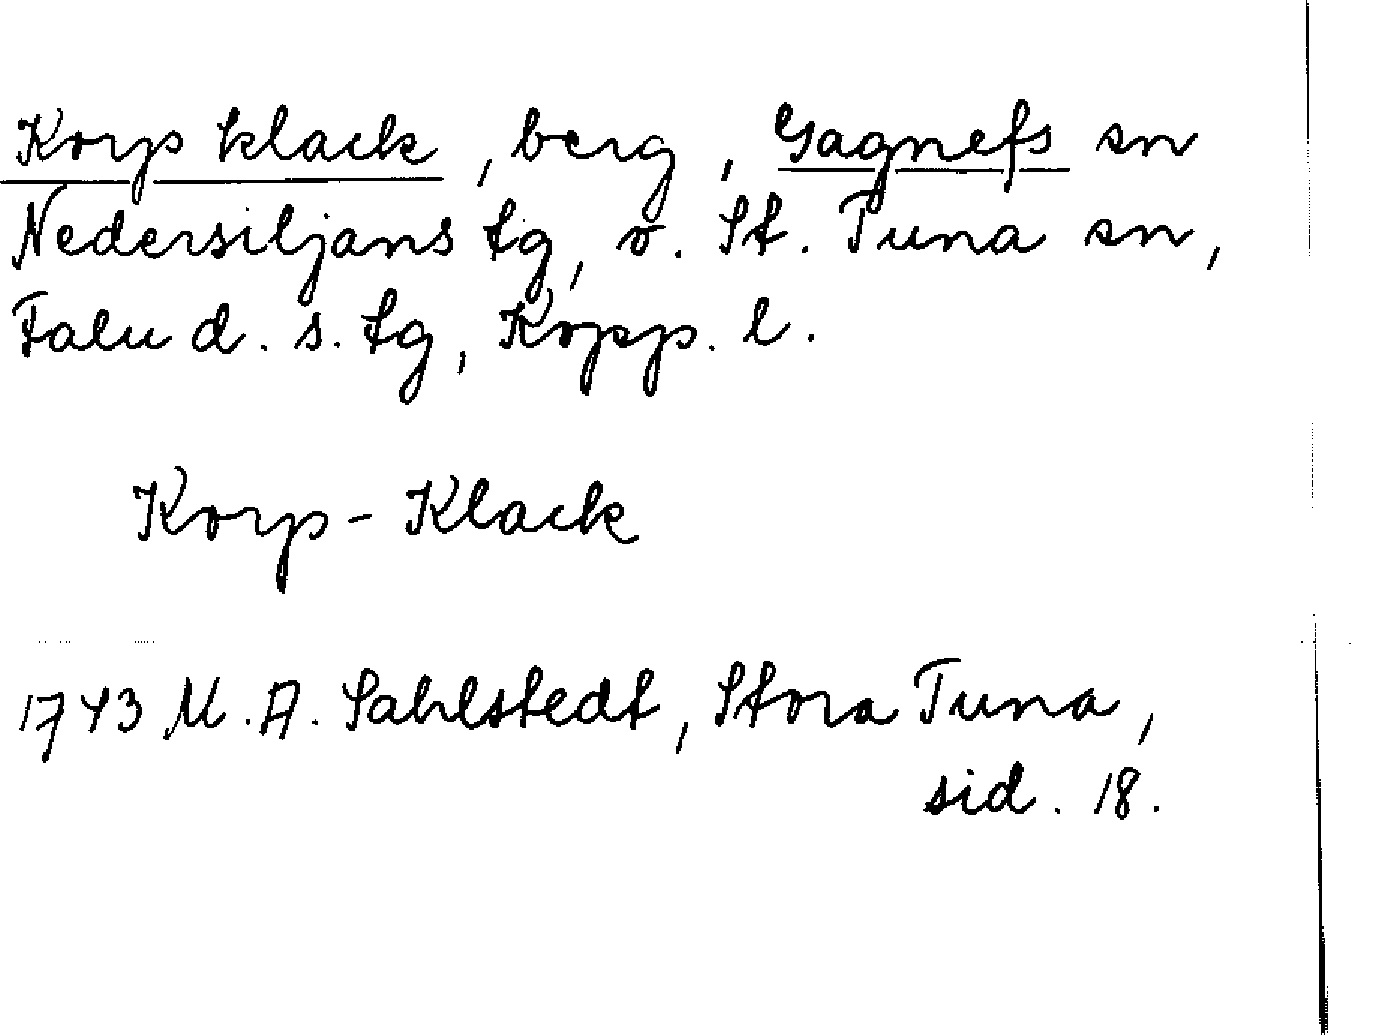 Korp klack, berg, Gagnefs sn
Nedersiljans tg, o. St. Tuna sn,
Falu d. s. tg, Kopp. l.
Korp-Klack
1743 M. A. Sahlstedt, Stora Tuna,
sid. 18.